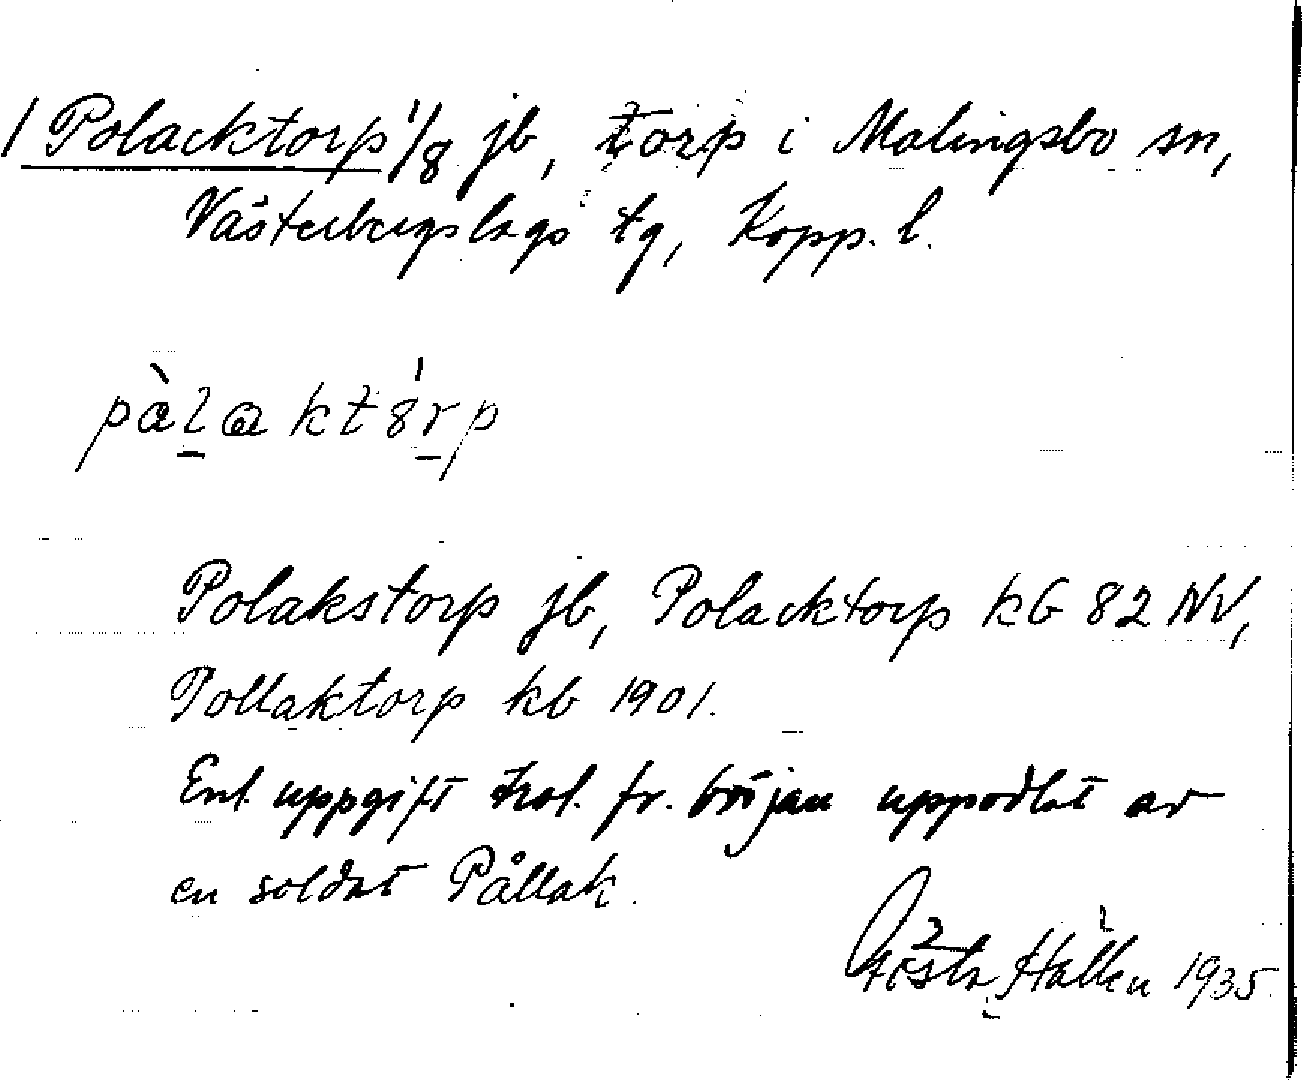 / Polacktorp 1/8 jb, torp i Malingsbo sn,
Västerbergslags tg, Kopp. l.
pàlaktórp
Polakstorp jb, Polacktorp kb 82 NV,
Pollaktorp kb 1901.
Enl. uppgift trol. fr. början uppodlat av
en soldat Pållak.
Hällen 1935